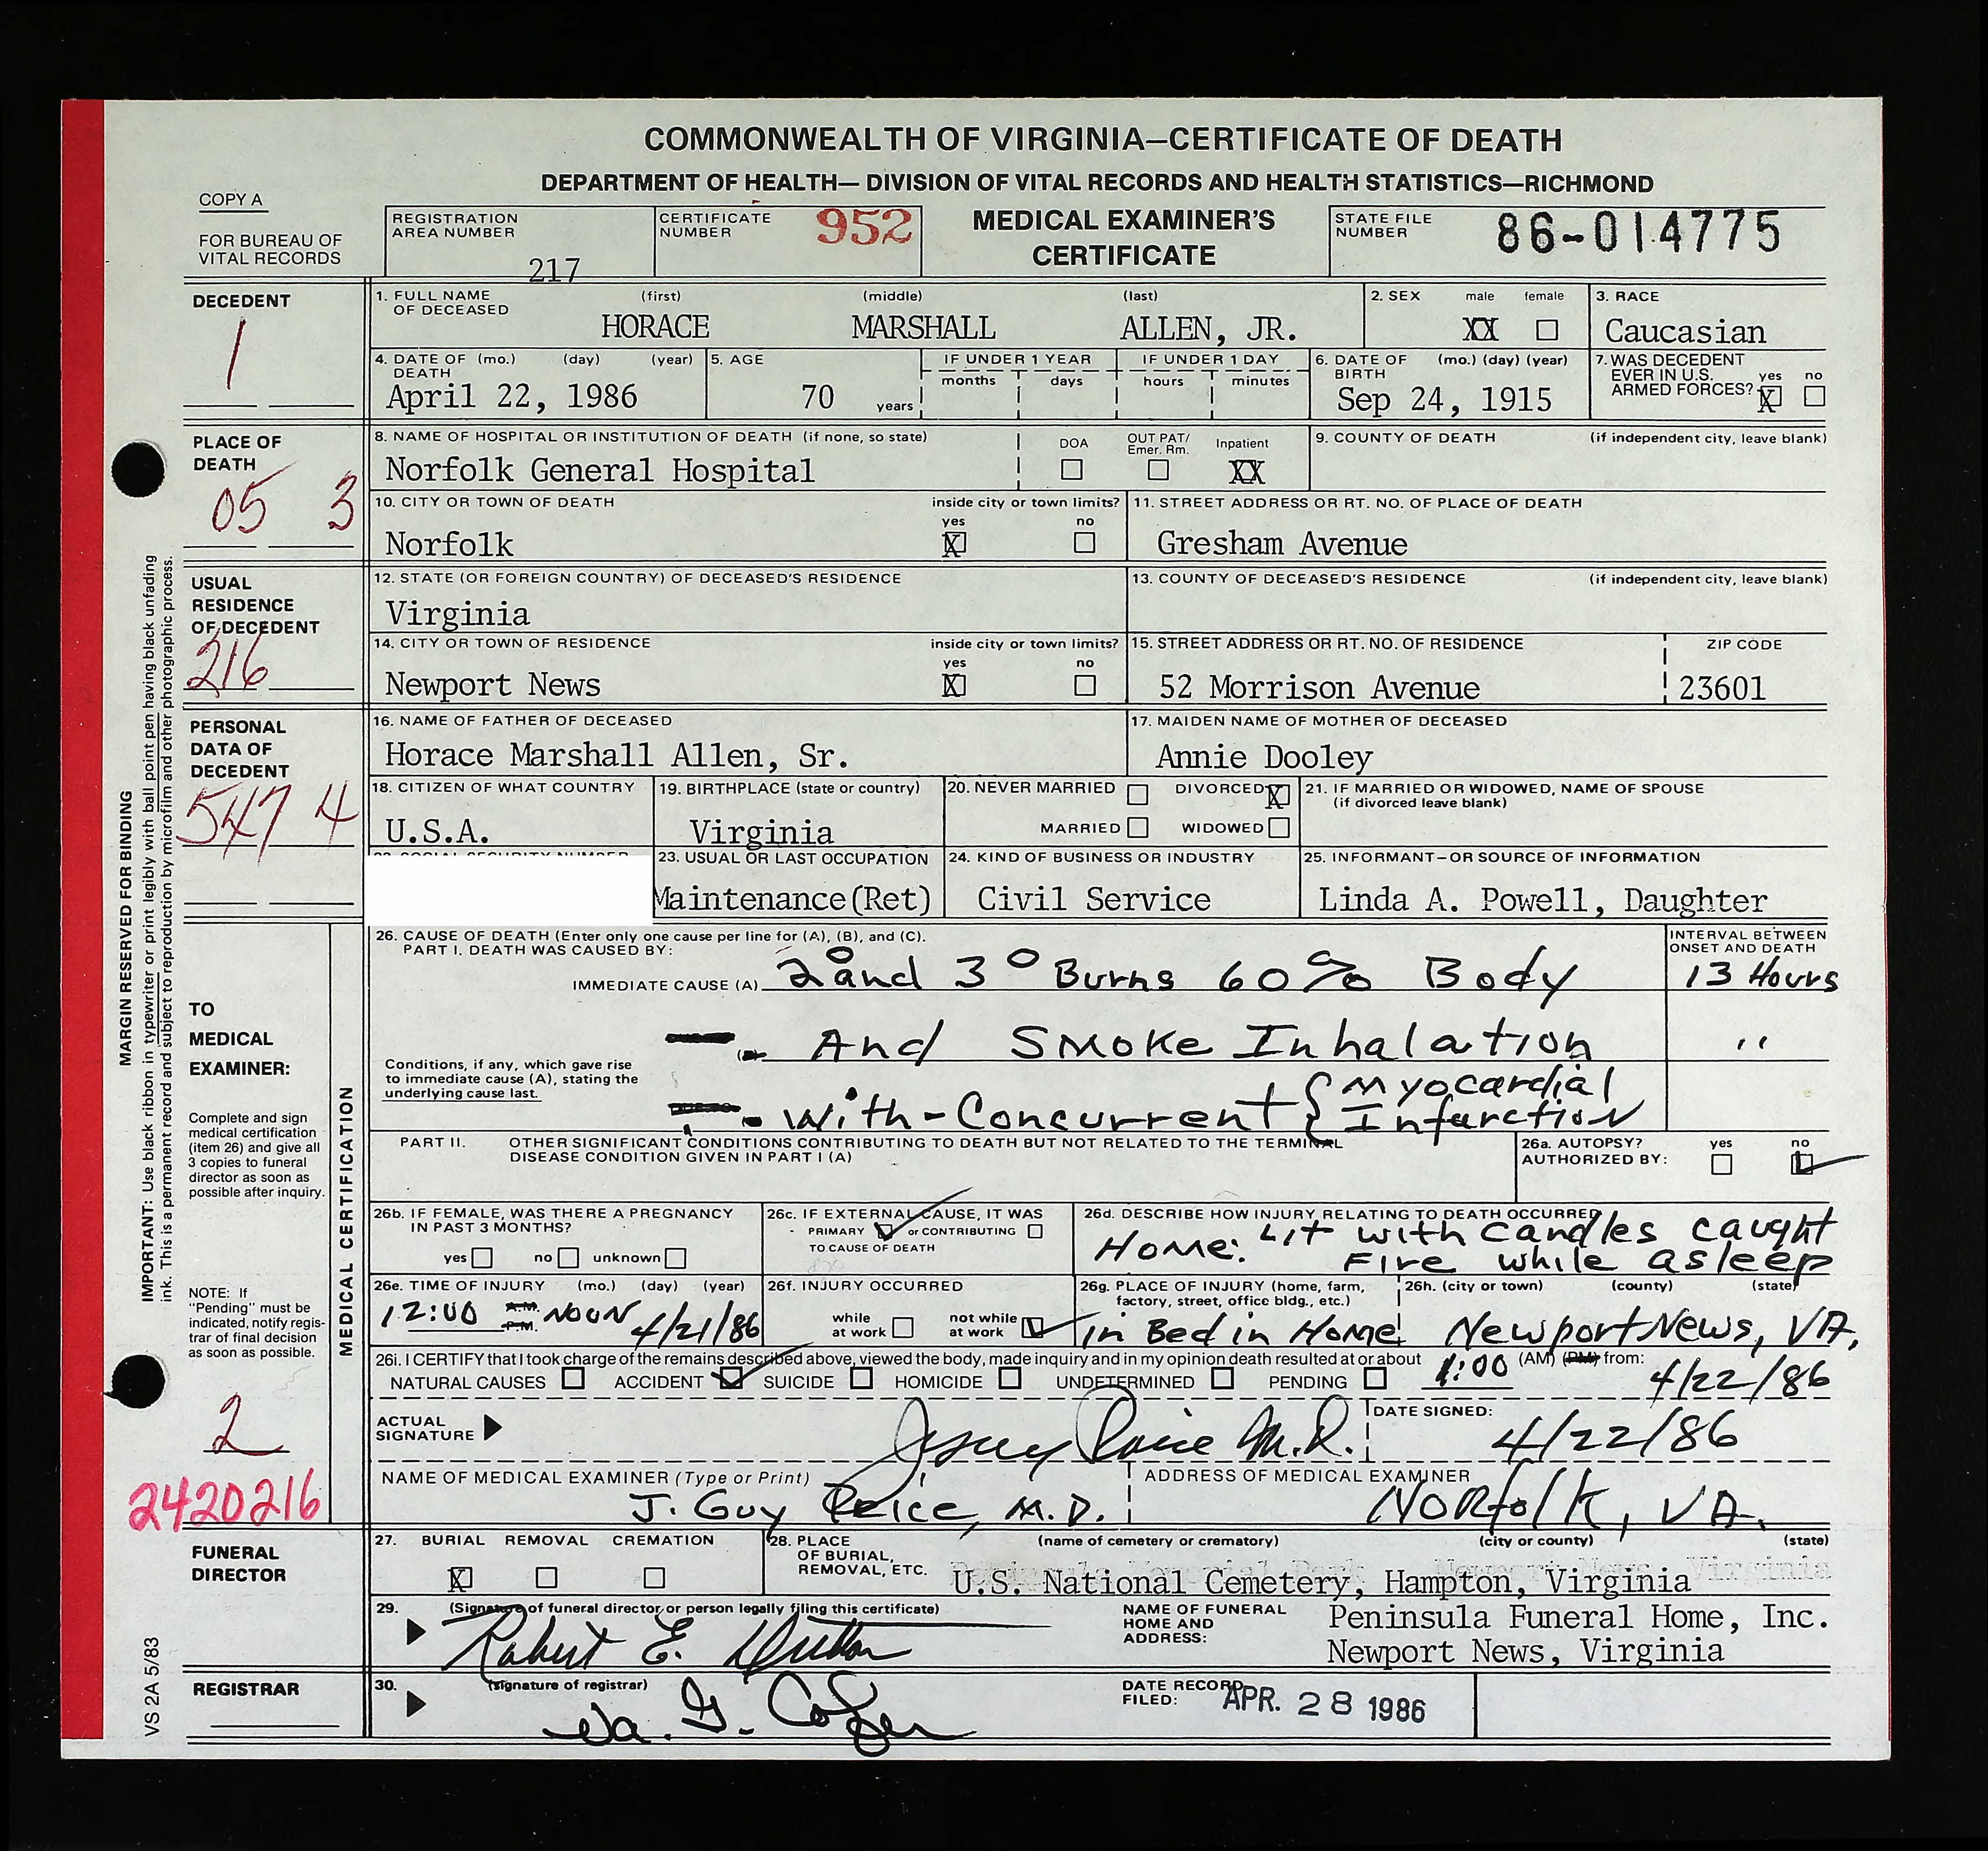 COMMONWEALTH OF VIRGINIA—CERTIFICATE OF DEATH
DEPARTMENT OF HEALTH— DIVISION OF VITAL RECORDS AND HEALTH STATISTICS—RICHMOND
COPY A
FOR BUREAU OF
VITAL RECORDS
REGISTRATION
AREA NUMBER
217
CERTIFICATE
NUMBER
952
MEDICAL EXAMINER'S
CERTIFICATE
STATE FILE
NUMBER
86-014775
DECEDENT
1
1. FULL NAME (first) (middle) (last)
OF DECEASED
HORACE MARSHALL ALLEN, JR.
2. SEX male female
XX
3. RACE
Caucasian
4. DATE OF (mo.) (day) (year)
DEATH
April 22, 1986
5. AGE
70 years
IF UNDER 1 YEAR
months days
IF UNDER 1 DAY
hours minutes
6. DATE OF (mo.) (day) (year)
BIRTH
Sep 24, 1915
7. WAS DECEDENT
EVER IN U.S. yes no
ARMED FORCES? X
PLACE OF
DEATH
05 3
8. NAME OF HOSPITAL OR INSTITUTION OF DEATH (if none, so state)
Norfolk General Hospital
DOA
OUT PAT/
Emer. Rm.
Inpatient
XX
9. COUNTY OF DEATH (if independent city, leave blank)
10. CITY OR TOWN OF DEATH inside city or town limits?
yes no
Norfolk X
11. STREET ADDRESS OR RT. NO. OF PLACE OF DEATH
Gresham Avenue
USUAL
RESIDENCE
OF DECEDENT
216
12. STATE (OR FOREIGN COUNTRY) OF DECEASED'S RESIDENCE
Virginia
13. COUNTY OF DECEASED'S RESIDENCE (if independent city, leave blank)
14. CITY OR TOWN OF RESIDENCE inside city or town limits?
yes no
Newport News X
15. STREET ADDRESS OR RT. NO. OF RESIDENCE ZIP CODE
52 Morrison Avenue 23601
PERSONAL
DATA OF
DECEDENT
547 4
16. NAME OF FATHER OF DECEASED
Horace Marshall Allen, Sr.
17. MAIDEN NAME OF MOTHER OF DECEASED
Annie Dooley
18. CITIZEN OF WHAT COUNTRY
U.S.A.
19. BIRTHPLACE (state or country)
Virginia
20. NEVER MARRIED DIVORCED X
MARRIED WIDOWED
21. IF MARRIED OR WIDOWED, NAME OF SPOUSE
(if divorced leave blank)
23. USUAL OR LAST OCCUPATION
Maintenance(Ret)
24. KIND OF BUSINESS OR INDUSTRY
Civil Service
25. INFORMANT—OR SOURCE OF INFORMATION
Linda A. Powell, Daughter
MARGIN RESERVED FOR BINDING
IMPORTANT: Use black ribbon in typewriter or print legibly with ball point pen having black unfading
ink. This is a permanent record and subject to reproduction by microfilm and other photographic process.
MEDICAL CERTIFICATION
TO
MEDICAL
EXAMINER:
Complete and sign
medical certification
(item 26) and give all
3 copies to funeral
director as soon as
possible after inquiry.
NOTE: If
"Pending" must be
indicated, notify regis-
trar of final decision
as soon as possible.
2
2420216
26. CAUSE OF DEATH (Enter only one cause per line for (A), (B), and (C).
PART I. DEATH WAS CAUSED BY:
INTERVAL BETWEEN
ONSET AND DEATH
IMMEDIATE CAUSE (A) 2° and 3° Burns 60% Body 13 Hours
And Smoke Inhalation ''
Conditions, if any, which gave rise
to immediate cause (A), stating the
underlying cause last.
With-Concurrent { Myocardial
Infarction
PART II. OTHER SIGNIFICANT CONDITIONS CONTRIBUTING TO DEATH BUT NOT RELATED TO THE TERMINAL
DISEASE CONDITION GIVEN IN PART I (A)
26a. AUTOPSY? yes no
AUTHORIZED BY:
26b. IF FEMALE, WAS THERE A PREGNANCY
IN PAST 3 MONTHS?
yes no unknown
26c. IF EXTERNAL CAUSE, IT WAS
PRIMARY or CONTRIBUTING
TO CAUSE OF DEATH
26d. DESCRIBE HOW INJURY RELATING TO DEATH OCCURRED
Home: Lit with candles caught
Fire while asleep
26e. TIME OF INJURY (mo.) (day) (year)
12:00 A.M. P.M. NOON 4/21/86
26f. INJURY OCCURRED
while
at work
not while
at work
26g. PLACE OF INJURY (home, farm,
factory, street, office bldg., etc.)
in Bed in Home
26h. (city or town) (county) (state)
Newport News, VA.
26i. I CERTIFY that I took charge of the remains described above, viewed the body, made inquiry and in my opinion death resulted at or about 1:00 (AM) (PM) from:
NATURAL CAUSES ACCIDENT SUICIDE HOMICIDE UNDETERMINED PENDING 4/22/86
ACTUAL
SIGNATURE
M.D.
DATE SIGNED:
4/22/86
NAME OF MEDICAL EXAMINER (Type or Print)
J. Guy Price, M.D.
ADDRESS OF MEDICAL EXAMINER
Norfolk, VA.
FUNERAL
DIRECTOR
27. BURIAL REMOVAL CREMATION
X
28. PLACE
OF BURIAL,
REMOVAL, ETC.
(name of cemetery or crematory) (city or county) (state)
U.S. National Cemetery, Hampton, Virginia
29. (Signature of funeral director or person legally filing this certificate)
Robert E.
NAME OF FUNERAL
HOME AND
ADDRESS:
Peninsula Funeral Home, Inc.
Newport News, Virginia
REGISTRAR
30. (signature of registrar)
DATE RECORD
FILED:
APR. 28 1986
VS 2A 5/83